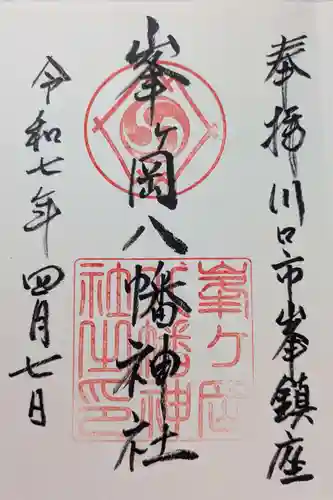 奉拝 川口市峯鎮座
峯ヶ岡八幡神社
令和七年四月七日
峯ヶ岡
八幡神
社之印